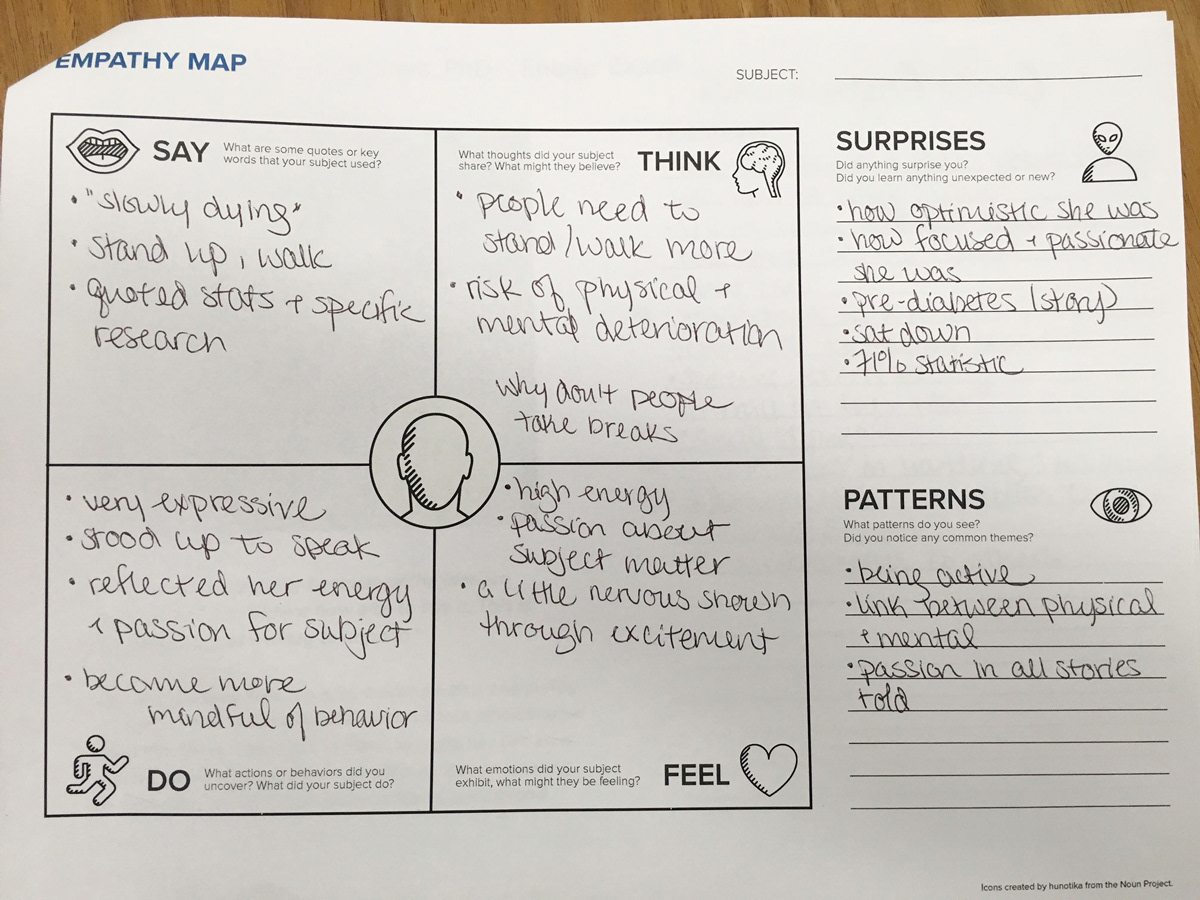 EMPATHY MAP
SUBJECT:
SAY
What are some quotes or key
words that your subject used?
• "slowly dying"
• stand up, walk
• quoted stats + specific
research
What thoughts did your subject
share? What might they believe?
THINK
• people need to
stand/walk more
• risk of physical +
mental deterioration
why don't people
take breaks
• very expressive
• stood up to speak
• reflected her energy
+ passion for subject
• become more
mindful of behavior
DO
What actions or behaviors did you
uncover? What did your subject do?
• high energy
• passion about
subject matter
• a little nervous shown
through excitement
What emotions did your subject
exhibit, what might they be feeling?
FEEL
SURPRISES
Did anything surprise you?
Did you learn anything unexpected or new?
• how optimistic she was
• how focused + passionate
she was
• pre-diabetes (story)
• sat down
• 71% statistic
PATTERNS
What patterns do you see?
Did you notice any common themes?
• being active
• link between physical
+ mental
• passion in all stories
told
Icons created by hunotika from the Noun Project.